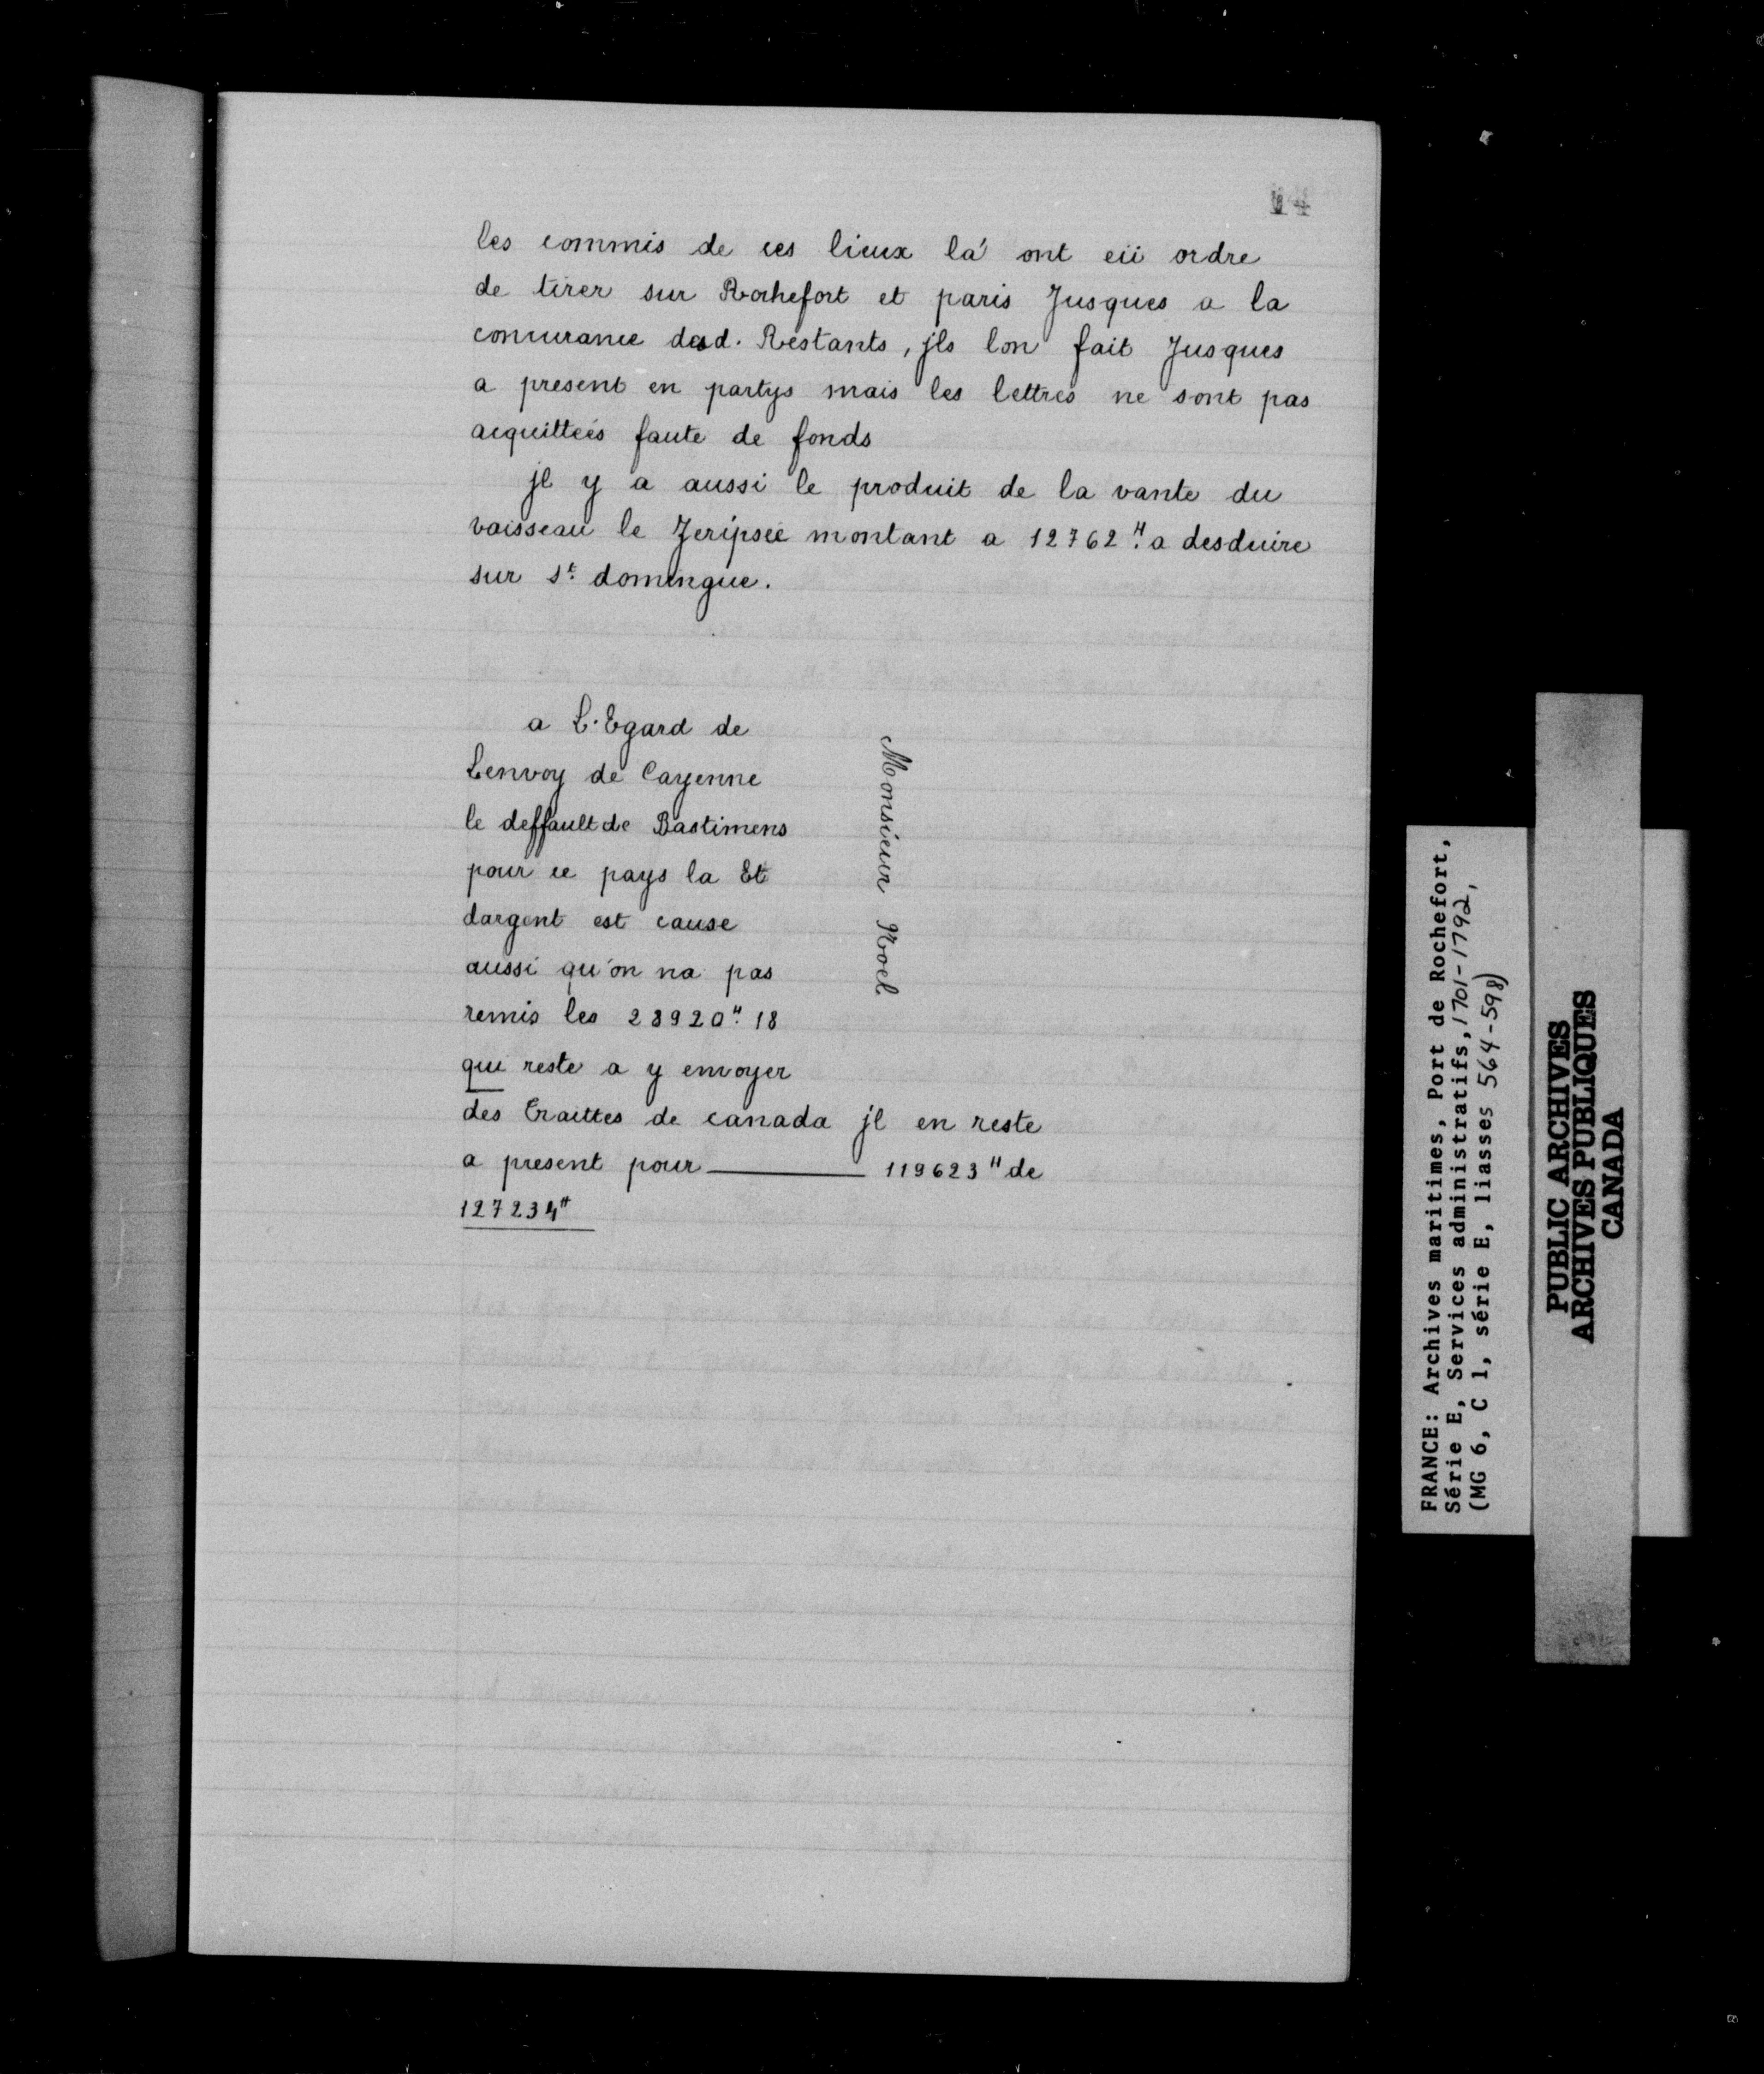 14
les commis de ces lieux là ont eü ordre
de tirer sur Rochefort et paris Jusques a la
concurance desd. Restants, jls lon fait Jusques
a present en partys mais les lettres ne sont pas
acquittées faute de fonds
jl y a aussi le produit de la vante du
vaisseau le Jeripsée montant a 12762ᴴ a desduire
sur sᵗ. domingue.
a L'Egard de
Lenvoy de Cayenne
le deffault de Bastimens
pour ce pays la Et
dargent est cause
aussi qu'on na pas
remis les 28920ᴴ 18
qui reste a y envoyer
des traittes de canada jl en reste
a present pour — 119623ᴴ de
127234ᴴ
Monsieur Noel
FRANCE: Archives maritimes, Port de Rochefort,
Série E, Services administratifs, 1701-1792,
(MG 6, C 1, série E, liasses 564-598)
PUBLIC ARCHIVES
ARCHIVES PUBLIQUES
CANADA